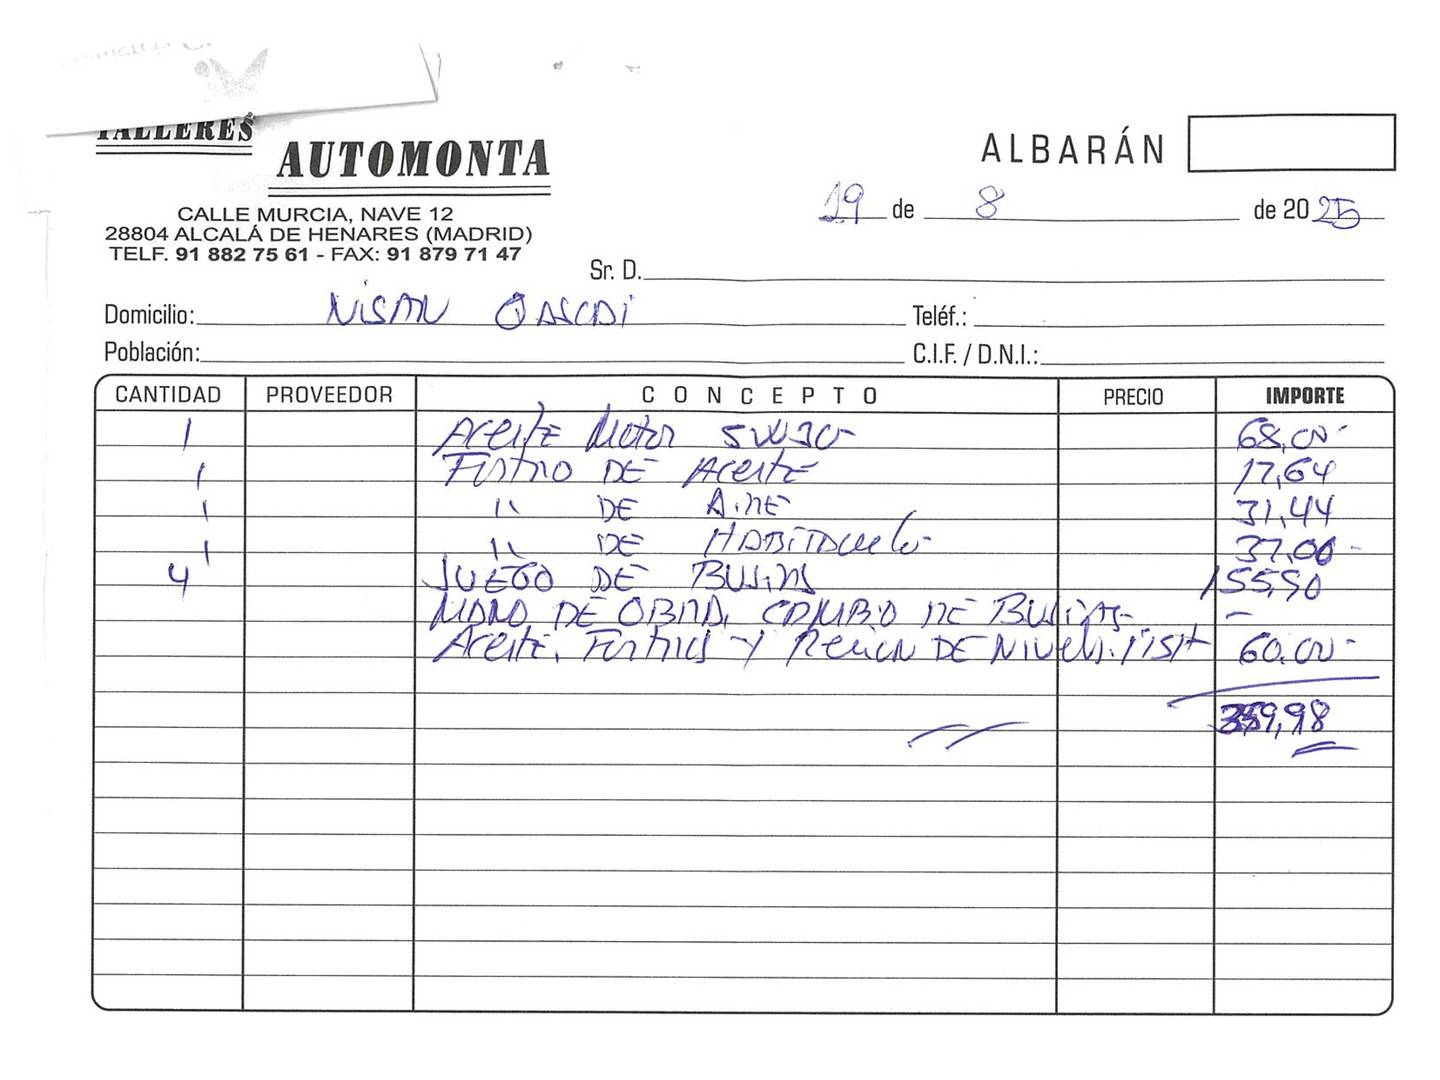 TALLERES
AUTOMONTA
CALLE MURCIA, NAVE 12
28804 ALCALÁ DE HENARES (MADRID)
TELF. 91 882 75 61 - FAX: 91 879 71 47
ALBARÁN
19 de 8 de 2025
Sr. D.
Domicilio: NISAN QASCAI Teléf.:
Población: C.I.F. / D.N.I.:
CANTIDAD PROVEEDOR CONCEPTO PRECIO IMPORTE
1 Aceite Motor 5W30 68,00-
1 Filtro DE Aceite 17,64
1 " DE Aire 31,44
1 " DE HABITACULO 37,00-
4 JUEGO DE BUJIAS 155,90
MANO DE OBRA, CAMBIO DE BUJIAS -
Aceite, Filtros Y DE NIVELES. 60,00-
359,98